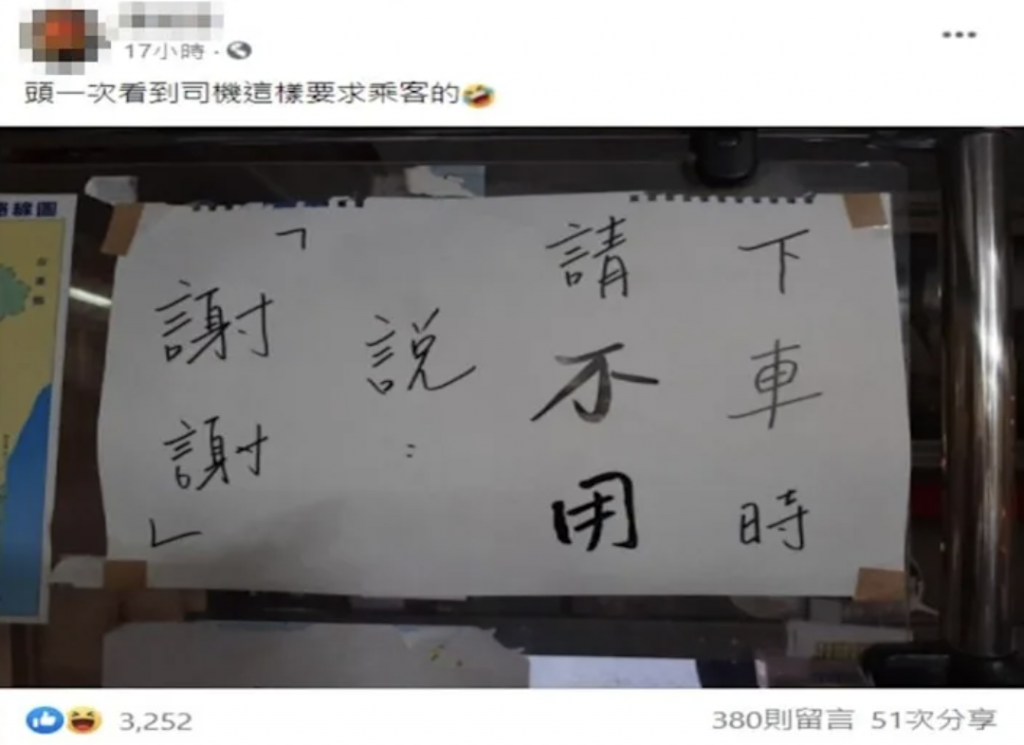 17小時
頭一次看到司機這樣要求乘客的🤣
線圖
下車時
請不用
說：
「謝謝」
3,252
380則留言 51次分享